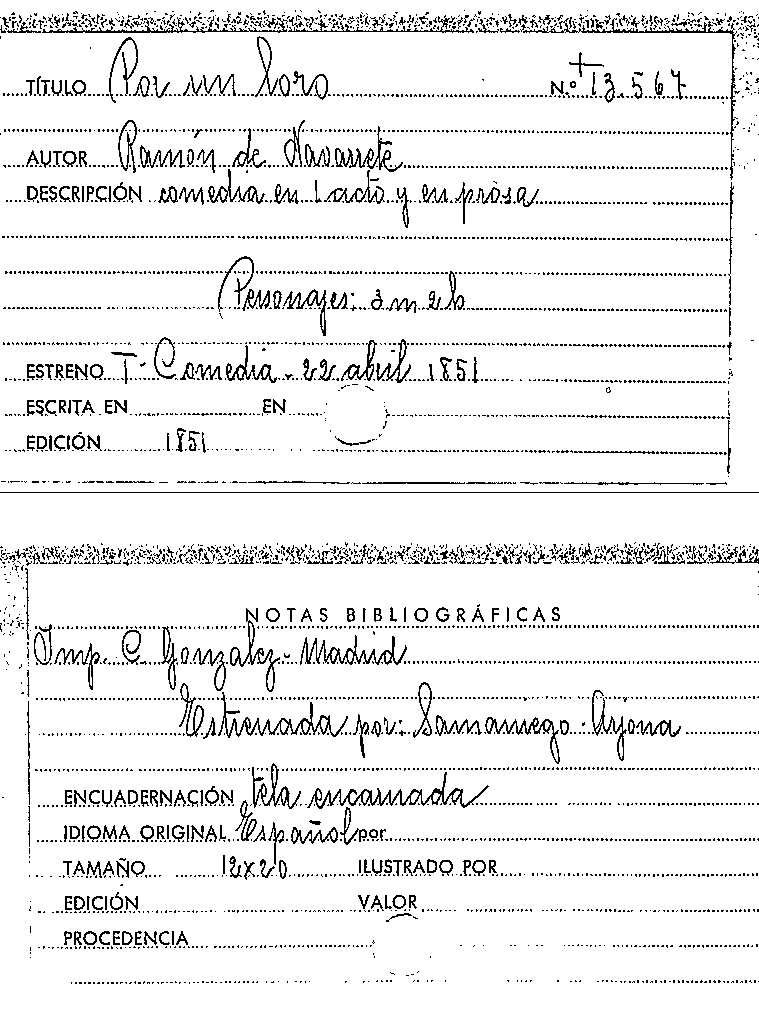 TÍTULO Por un loro N.º 13.567
AUTOR Ramón de Navarrete
DESCRIPCIÓN comedia en 1 acto y en prosa
Personajes: 3 m 2 h
ESTRENO T. Comedia - 22 abril 1851
ESCRITA EN EN
EDICIÓN 1851
NOTAS BIBLIOGRÁFICAS
Imp. C. Gonzalez - Madrid
Estrenada por: Samaniego - Arjona
ENCUADERNACIÓN tela encarnada
IDIOMA ORIGINAL Español por
TAMAÑO 12x20 ILUSTRADO POR
EDICIÓN VALOR
PROCEDENCIA